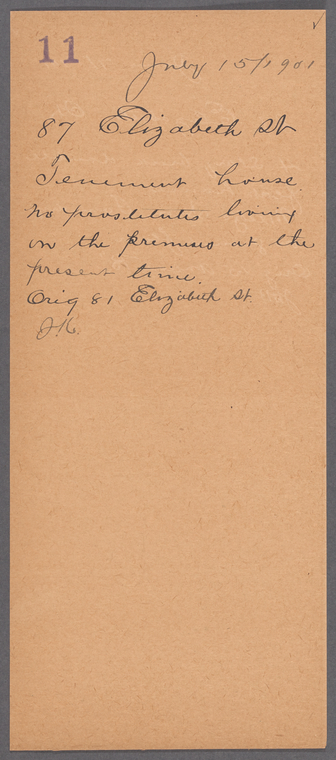 11
July 15/1901
87 Elizabeth St
Tenement house.
No prostitutes living
on the premises at the
present time.
Orig 81 Elizabeth St.
J.K.